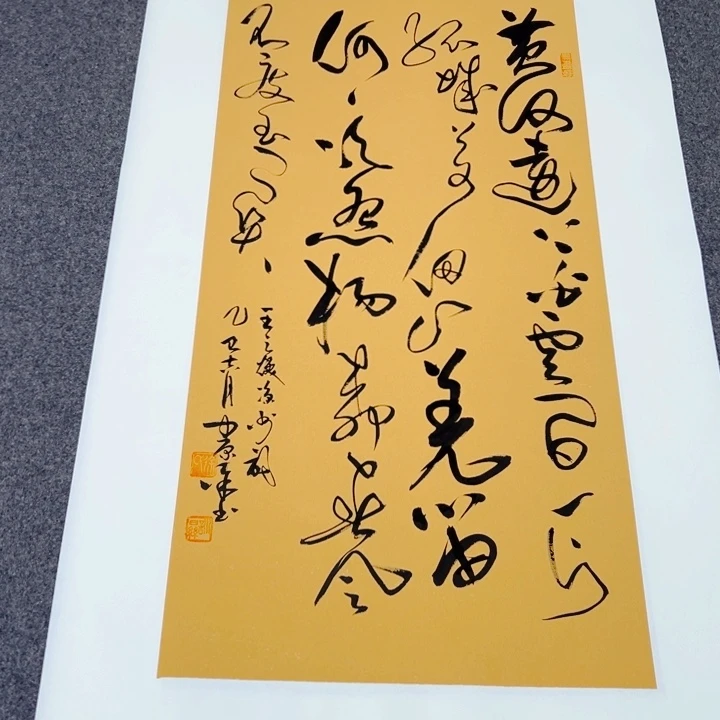 黄河遠上白雲间一片
孤城萬仞山羌笛
何須怨楊柳春風
不度玉门关
王之渙凉州詞
六月